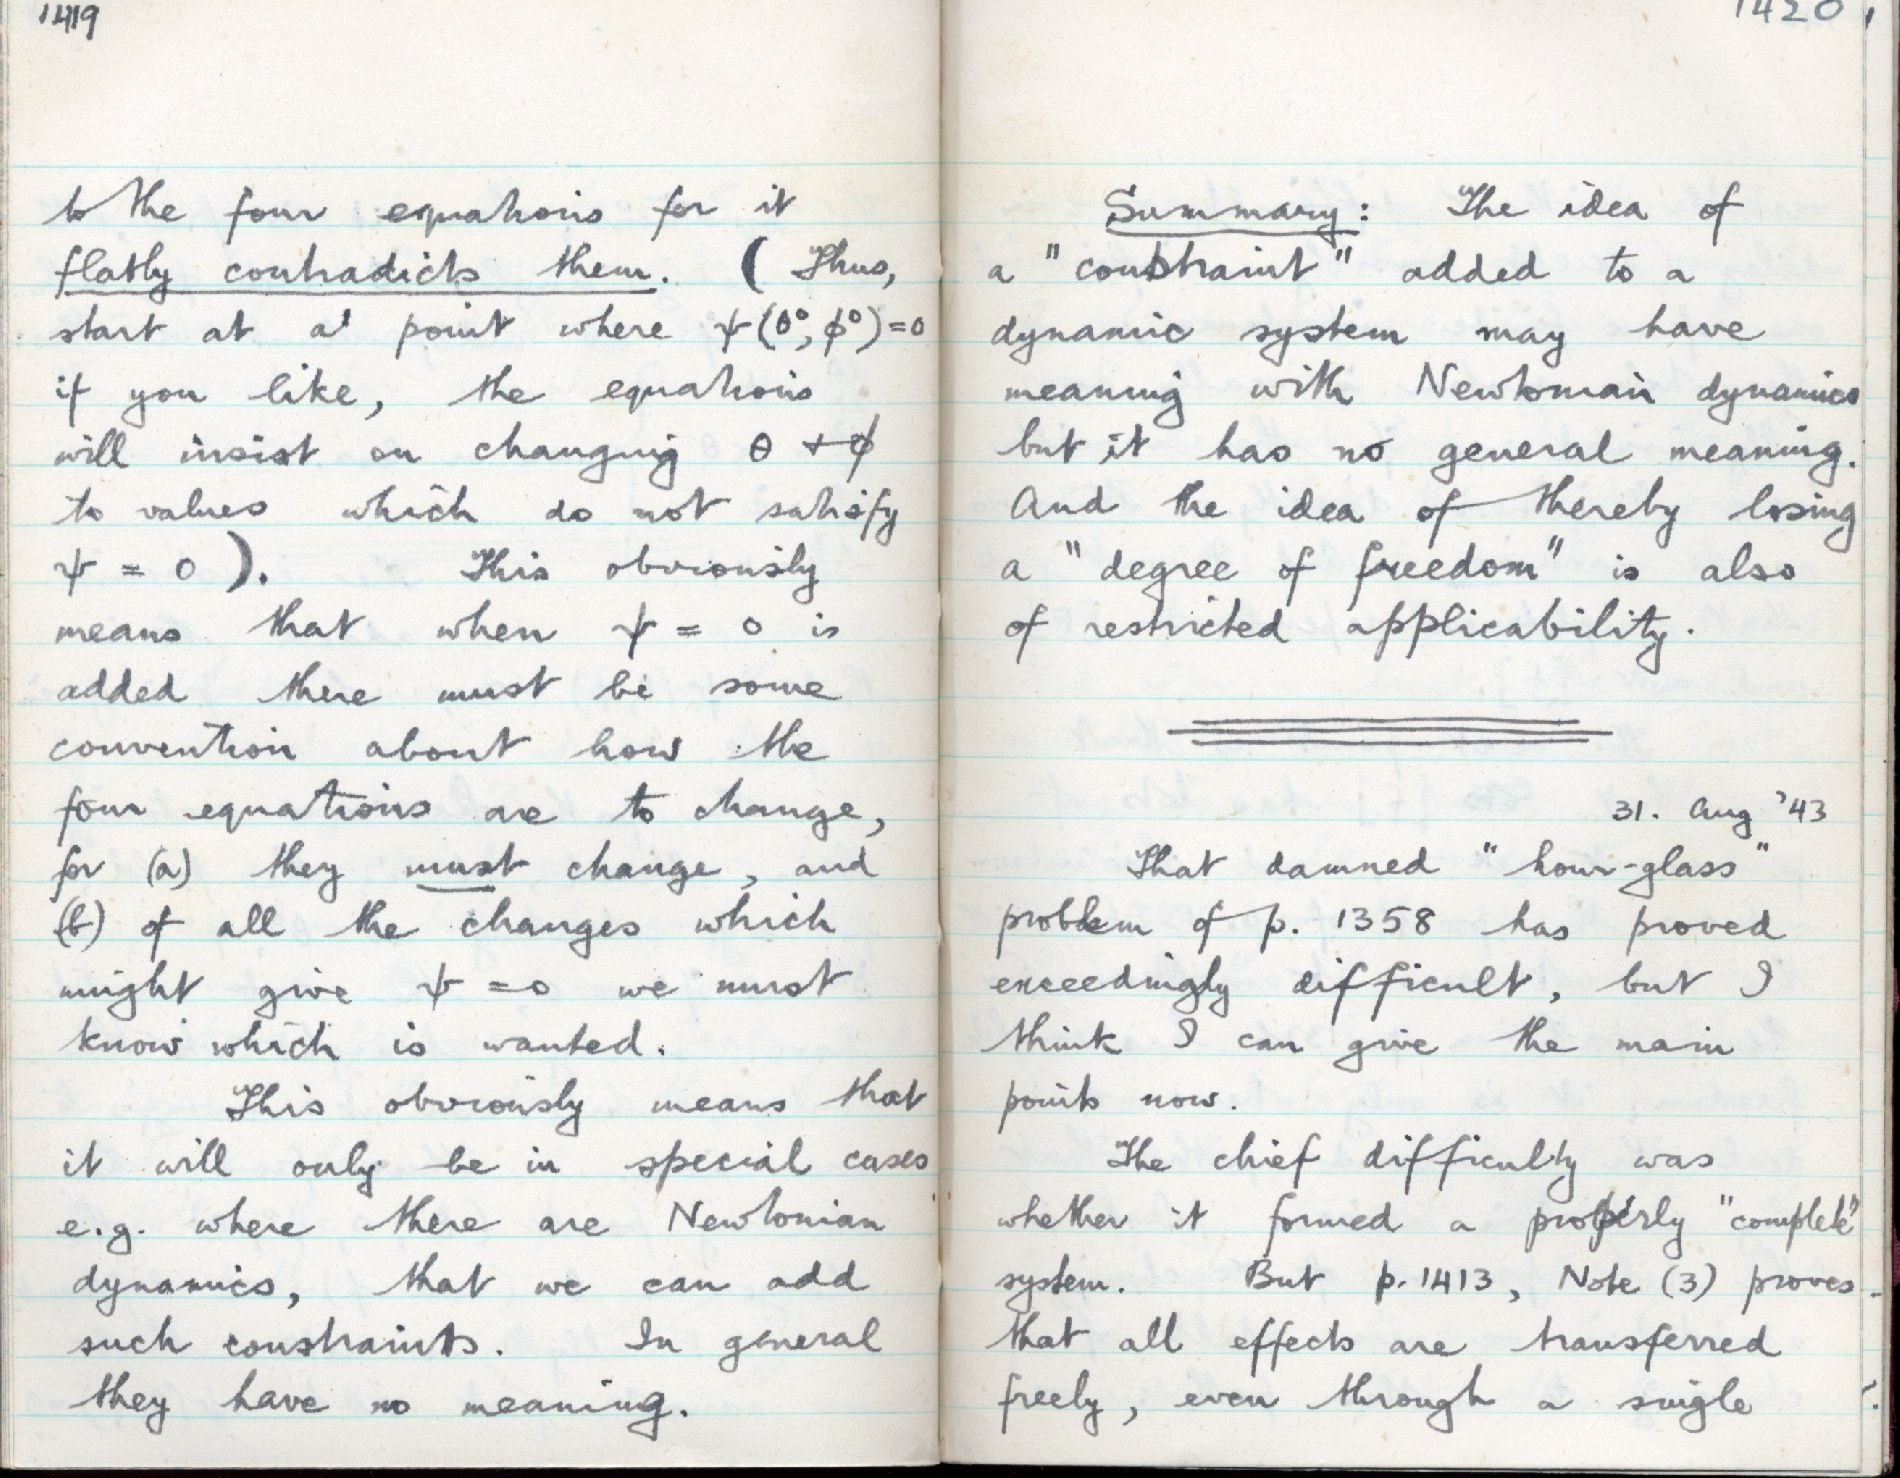 1419
to the four equations for it
flatly contradicts them. ( Thus,
start at a point where ψ(θ°, ϕ°)=0
if you like, the equations
will insist on changing θ + ϕ
to values which do not satisfy
ψ = 0 ). This obviously
means that when ψ = 0 is
added there must be some
convention about how the
four equations are to change,
for (a) they must change, and
(b) of all the changes which
might give ψ = 0 we must
know which is wanted.
This obviously means that
it will only be in special cases
e.g. where there are Newtonian
dynamics, that we can add
such constraints. In general
they have no meaning.
1420
Summary: The idea of
a "constraint" added to a
dynamic system may have
meaning with Newtonian dynamics
but it has no general meaning.
And the idea of thereby losing
a "degree of freedom" is also
of restricted applicability.
31. Aug '43
That damned "hour-glass"
problem of p. 1358 has proved
exceedingly difficult, but I
think I can give the main
points now.
The chief difficulty was
whether it formed a properly "complete"
system. But p. 1413, Note (3) proves
that all effects are transferred
freely, even through a single